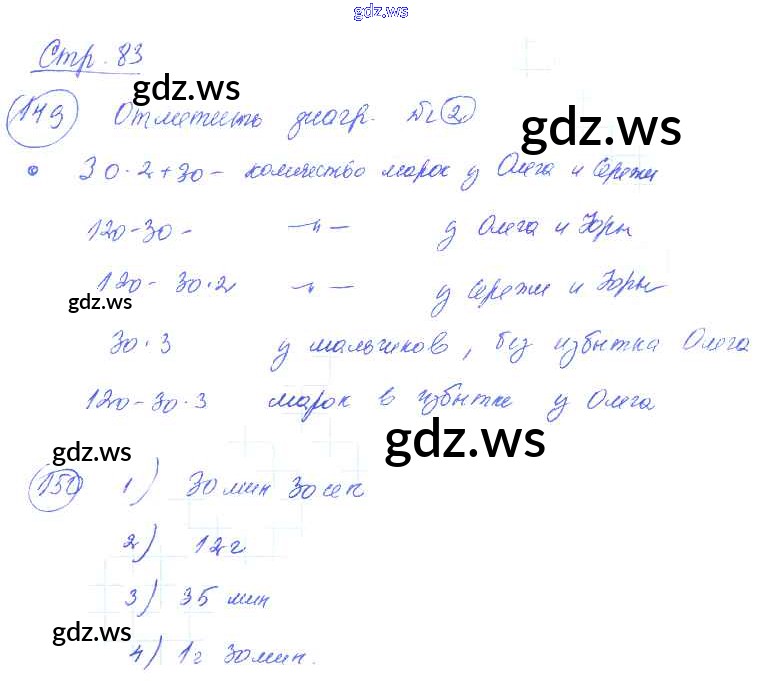 gdz.ws
Стр. 83
gdz.ws
149 Отметить диагр. № 2
gdz.ws
30·2+30 - количество марок у Олега и Сережи
120-30 - —〃— у Олега и Юры
120-30·2 —〃— у Сережи и Юры
gdz.ws
30·3 у мальчиков, без избытка Олега
120-30·3 марок в избытке у Олега
gdz.ws
gdz.ws
150 1) 30 мин 30 сек
2) 12 г
3) 35 мин
gdz.ws
4) 1г 30 мин.